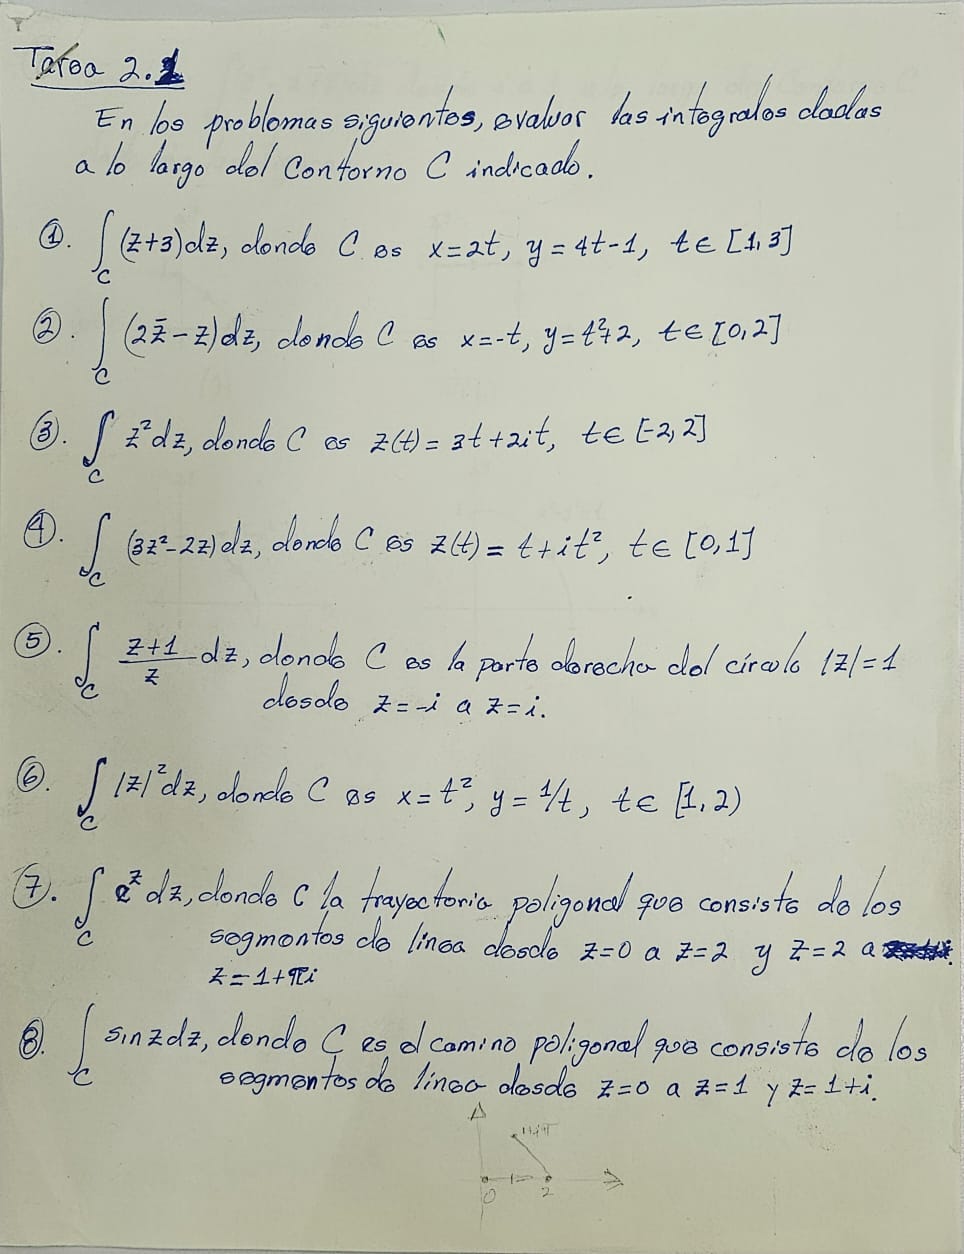 Tarea 2.1
En los problemas siguientes, evaluar las integrales dadas
a lo largo del contorno C indicado.
①. ∫_C (z+3)dz, donde C es x=2t, y=4t-1, t∈[1,3]
②. ∫_C (2z̄-z)dz, donde C es x=-t, y=t²+2, t∈[0,2]
③. ∫_C z²dz, donde C es z(t)=3t+2it, t∈[-2,2]
④. ∫_C (3z²-2z)dz, donde C es z(t)=t+it², t∈[0,1]
⑤. ∫_C (z+1)/z dz, donde C es la parte derecha del círculo |z|=1
desde z=-i a z=i.
⑥. ∫_C |z|²dz, donde C es x=t², y=1/t, t∈[1,2)
⑦. ∫_C e^z dz, donde C la trayectoria poligonal que consiste de los
segmentos de línea desde z=0 a z=2 y z=2 a
z=1+πi
⑧. ∫_C sin z dz, donde C es el camino poligonal que consiste de los
segmentos de línea desde z=0 a z=1 y z=1+i.
1+iπ
0 2